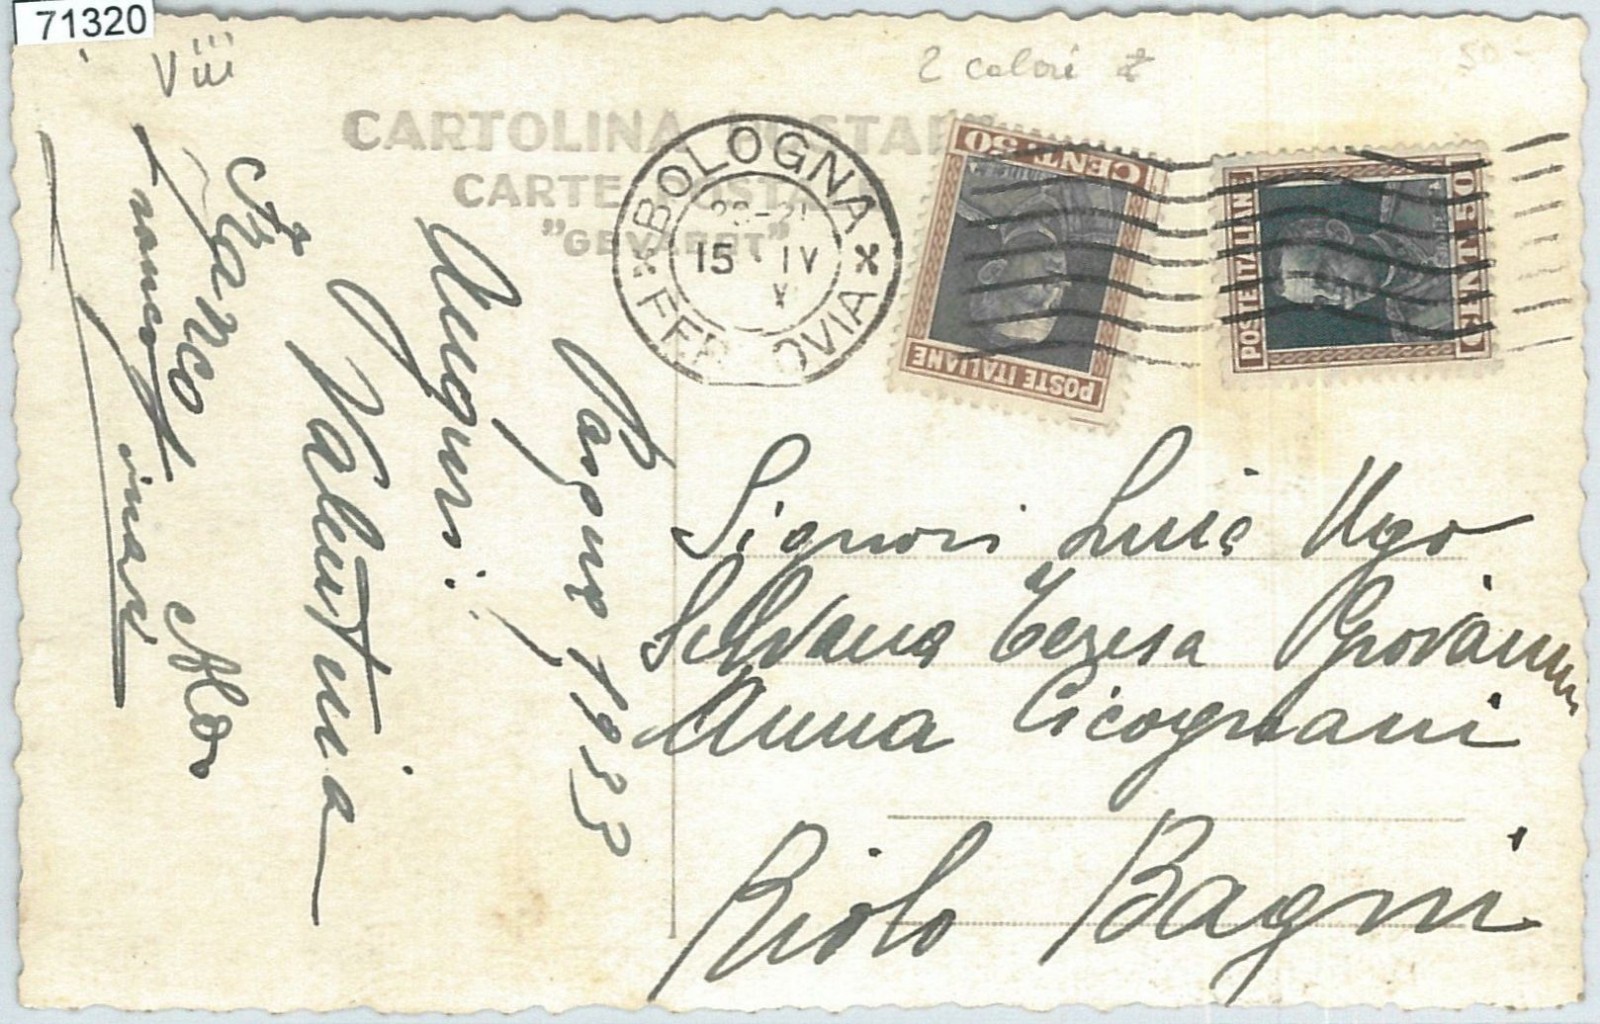 71320
2 colori
50-
CARTOLINA POSTALE
CARTE POSTALE
"GEVAERT"
BOLOGNA
FERROVIA
15 IV
CENT. 50
POSTE ITALIANE
POSTE ITALIANE
CENT. 50
Pasqua 1933
Auguri:
Valentina
Signori Luis Ugo
Silvana Tereza Giovanni
Anna Cicognani
Riolo Bagni